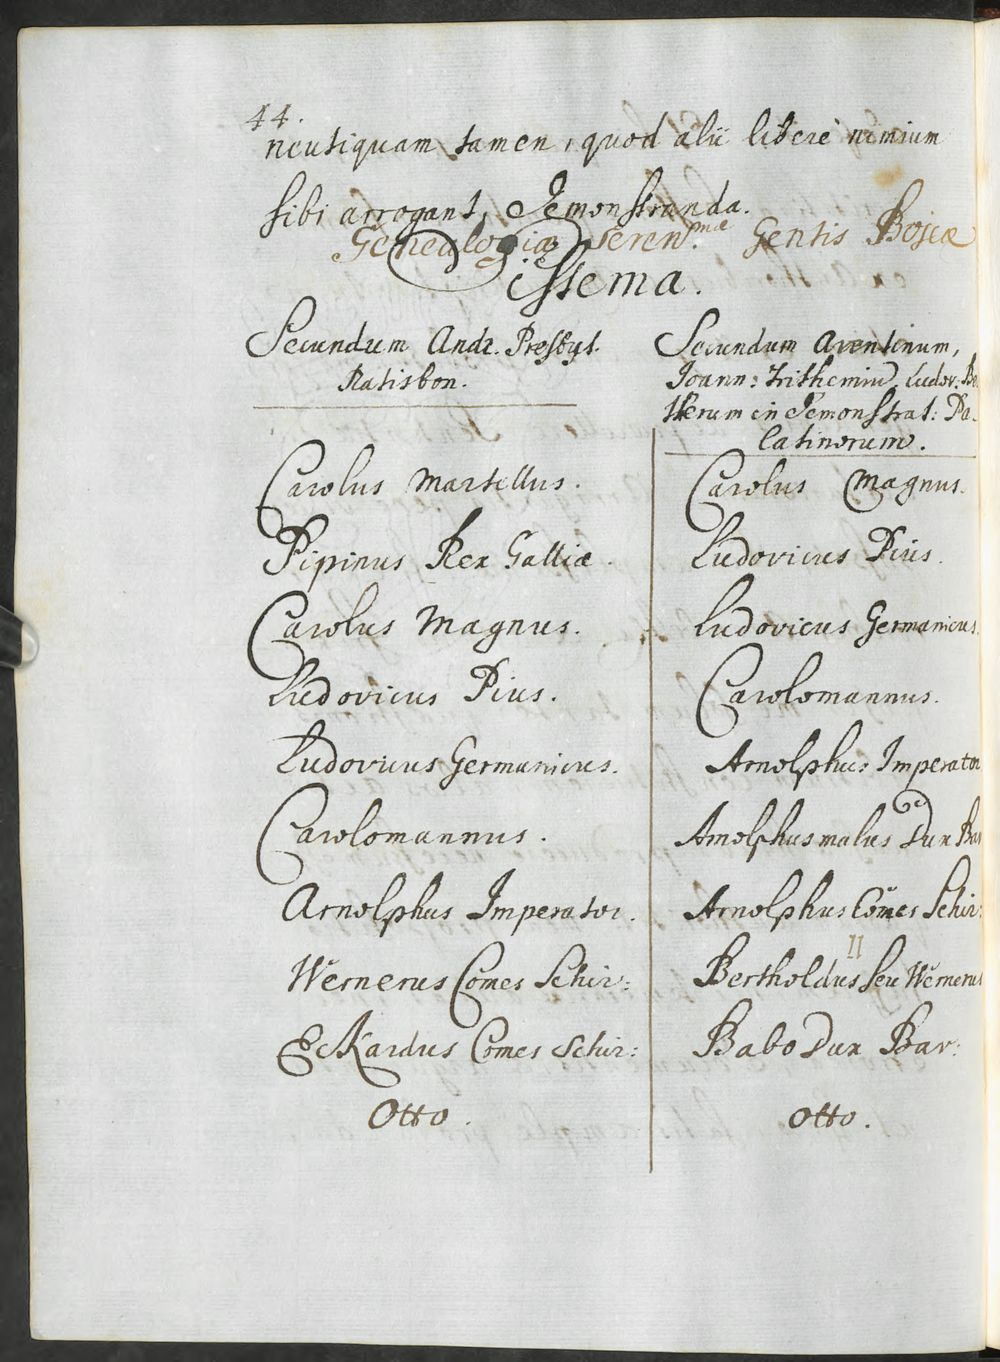 44.
neutiquam tamen, quod alii liberè nimium
sibi arrogant, demonstranda.
Genealogia seren.mæ Gentis Bojcæ
issema.
Secundum Andr. Presbyt.
Ratisbon.
Carolus Martellus.
Pipinus Rex Galliæ.
Carolus Magnus.
Ludovicus Pius.
Ludovicus Germanicus.
Carolomannus.
Arnolphus Imperator.
Wernerus Comes Schir:
Eckardus Comes Schir:
Otto.
Secundum Aventinum,
Joann: Trithemiu, Ludov. Be
llerum in demonstrat: Pa-
latinorum.
Carolus Magnus.
Ludovicus Pius.
Ludovicus Germanicus.
Carolomannus.
Arnolphus Imperator
Arnolphus malus Dux Bav
Arnolphus Comes Schir:
II
Bertholdus seu Wernerus
Babo Dux Bav:
Otto.